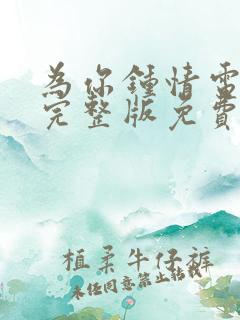 為你鍾情電
完整版免費
植柔牛仔裤
未经同意禁止转载